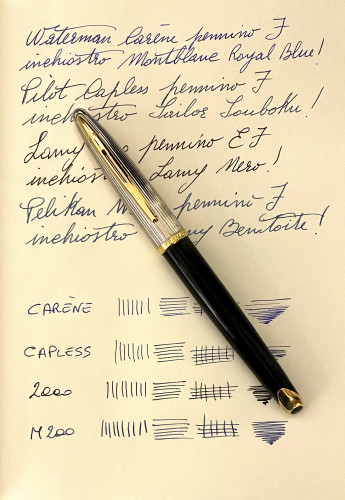 Waterman Carène pennino F
inchiostro Montblanc Royal Blue!
Pilot Capless pennino F
inchiostro Sailor Souboku!
Lamy pennino EF
inchiostro Lamy Nero!
Pelikan pennino F
inchiostro Benitoite!
CARÈNE
CAPLESS
2000
M200